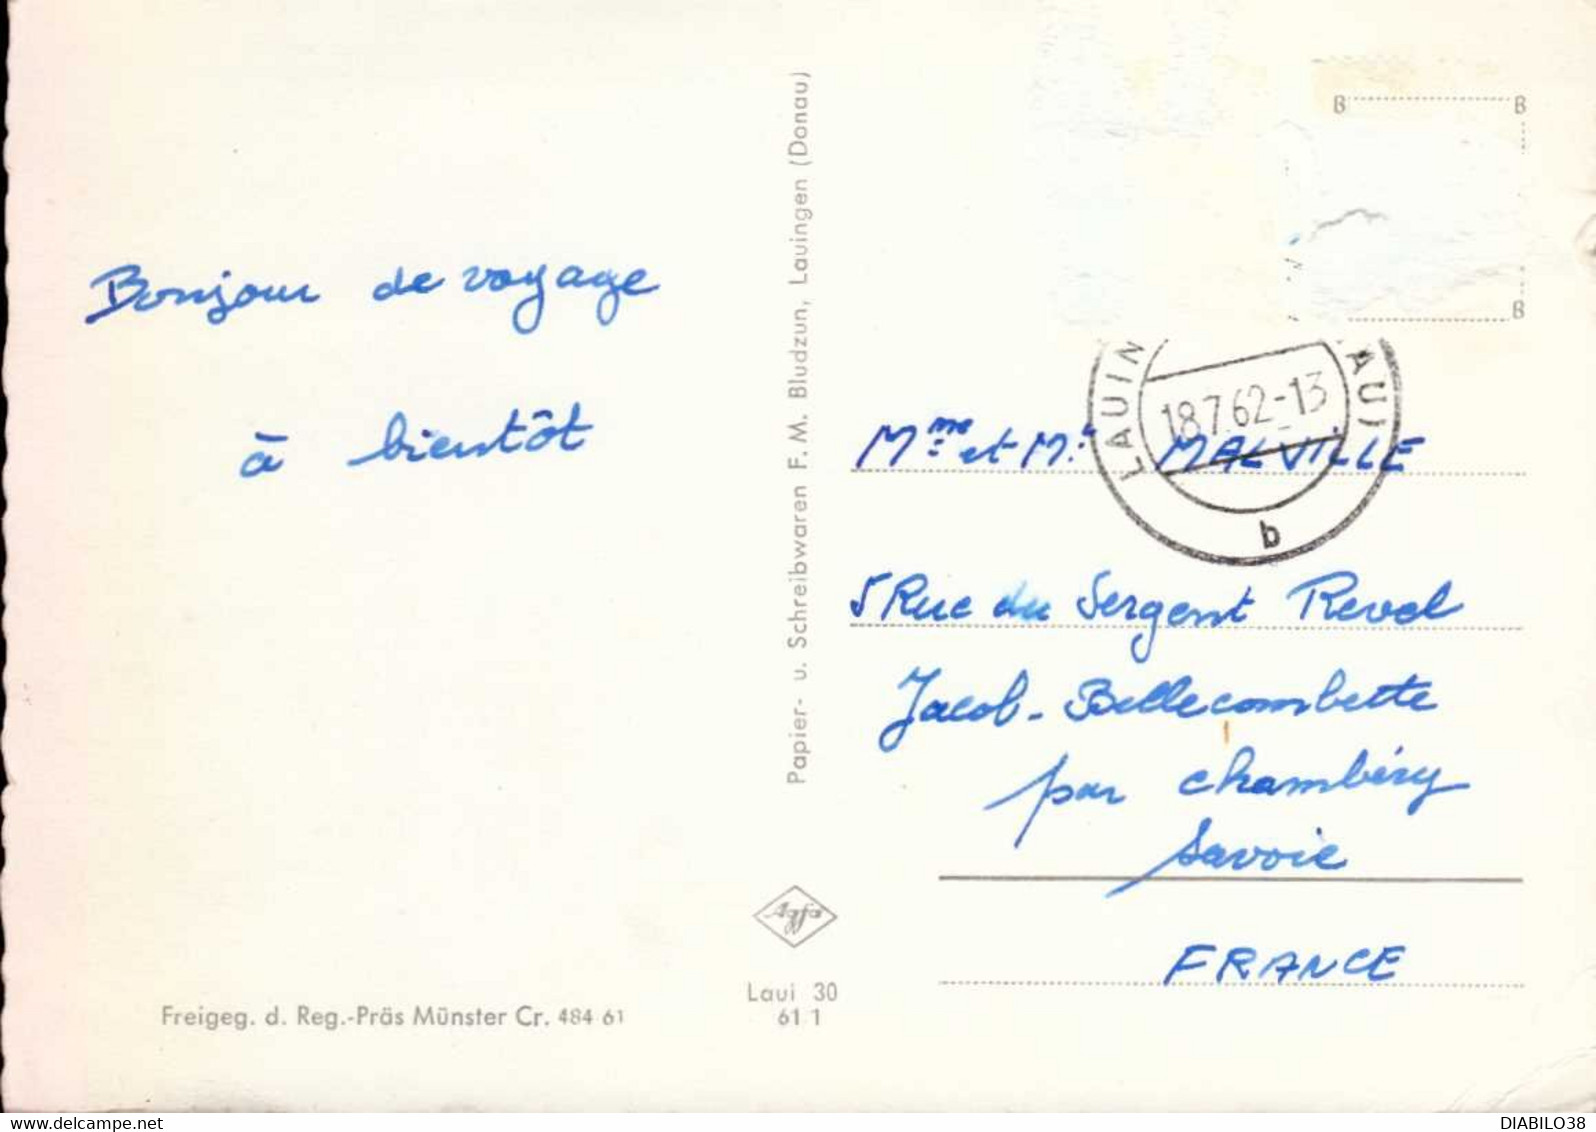 Bonjour de voyage
à bientôt
Papier- u. Schreibwaren F. M. Bludzun, Lauingen (Donau)
B B
B
LAUIN LAUI
18.7.62-13
b
Mme et Mr MALVILLE
5 Rue du Sergent Revel
Jacob-Bellecombette
par Chambéry
Savoie
FRANCE
Agfa
Laui 30
61 1
Freigeg. d. Reg.-Präs Münster Cr. 484 61
www.delcampe.net
DIABILO38